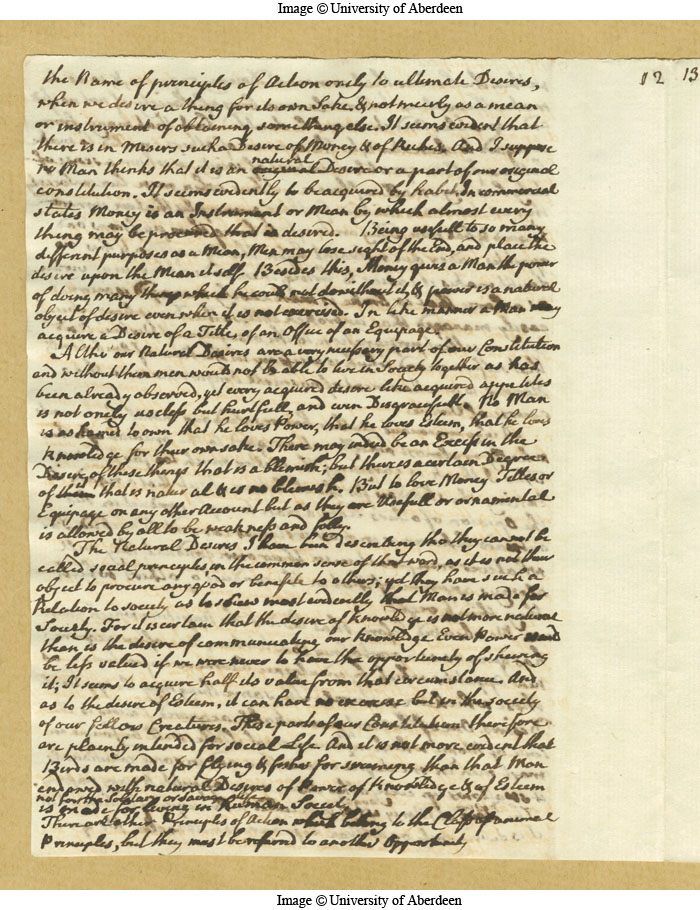 Image © University of Aberdeen
12 13
the Name of principles of Action onely to ultimate Desires,
when we desire a thing for its own Sake, & not meerly as a mean
or instrument of obtaining something else. It seems evident that
there is in Misers such a Desire of Money & of Riches. And I suppose
natural
no Man thinks that it is an original Desire or a part of our original
constitution. It seems evidently to be acquired by habit. In commercial
states Money is an Instrument or Mean by which almost every
thing may be procured that is desired. Being usefull to so many
different purposes as a Mean, Men may lose sight of the End, and place the
desire upon the Mean itself. Besides this, Money gives a Man the power
of doing many things which he could not do without it, & power is a natural
object of desire even when it is not exercised. In like manner a Man may
acquire a Desire of a Title, of an Office of an Equipage.
Altho our Natural Desires are a very necessary part of our Constitution
and without them men would not be able to live in Society together as has
been already observed, yet every acquired desire like acquired appetites
is not onely useless but hurtfull, and even Disgracefull. No Man
is ashamed to own that he loves Power, that he loves Esteem, that he loves
Knowledge for their own sake. There may indeed be an Excess in the
Desire of these things that is a blemish, but there is a certain Degree
of them that is natural & is no blemish. But to love Money Titles or
Equipage on any other Account but as they are Usefull or ornamental
is allowed by all to be weakness and folly.
The Natural Desires I have been describing tho they cannot be
called social principles in the common sense of that word, as it is not their
object to procure any good or benefite to others; yet they have such a
Relation to society as to shew most evidently that Man is made for
Society. For it is certain that the desire of knowledge is not more natural
than is the desire of communicating our knowledge Even Power would
be less valued if we were never to have the opportunity of shewing
it; It seems to acquire half its value from that circumstance. And
as to the desire of Esteem, it can have no exercise but in the society
of our fellow Creatures. These parts of our Constitution therefore
are plainly intended for social Life And it is not more evident that
Birds are made for flying & fishes for swimming than that Man
endowed with natural Desires of Power of Knowledge & of Esteem
not for the Solitary or Savage life
is made for living in Human Society
There are other Principles of Action which belong to the Class of animal
Principles, but they must be referred to another Opportunity
Image © University of Aberdeen